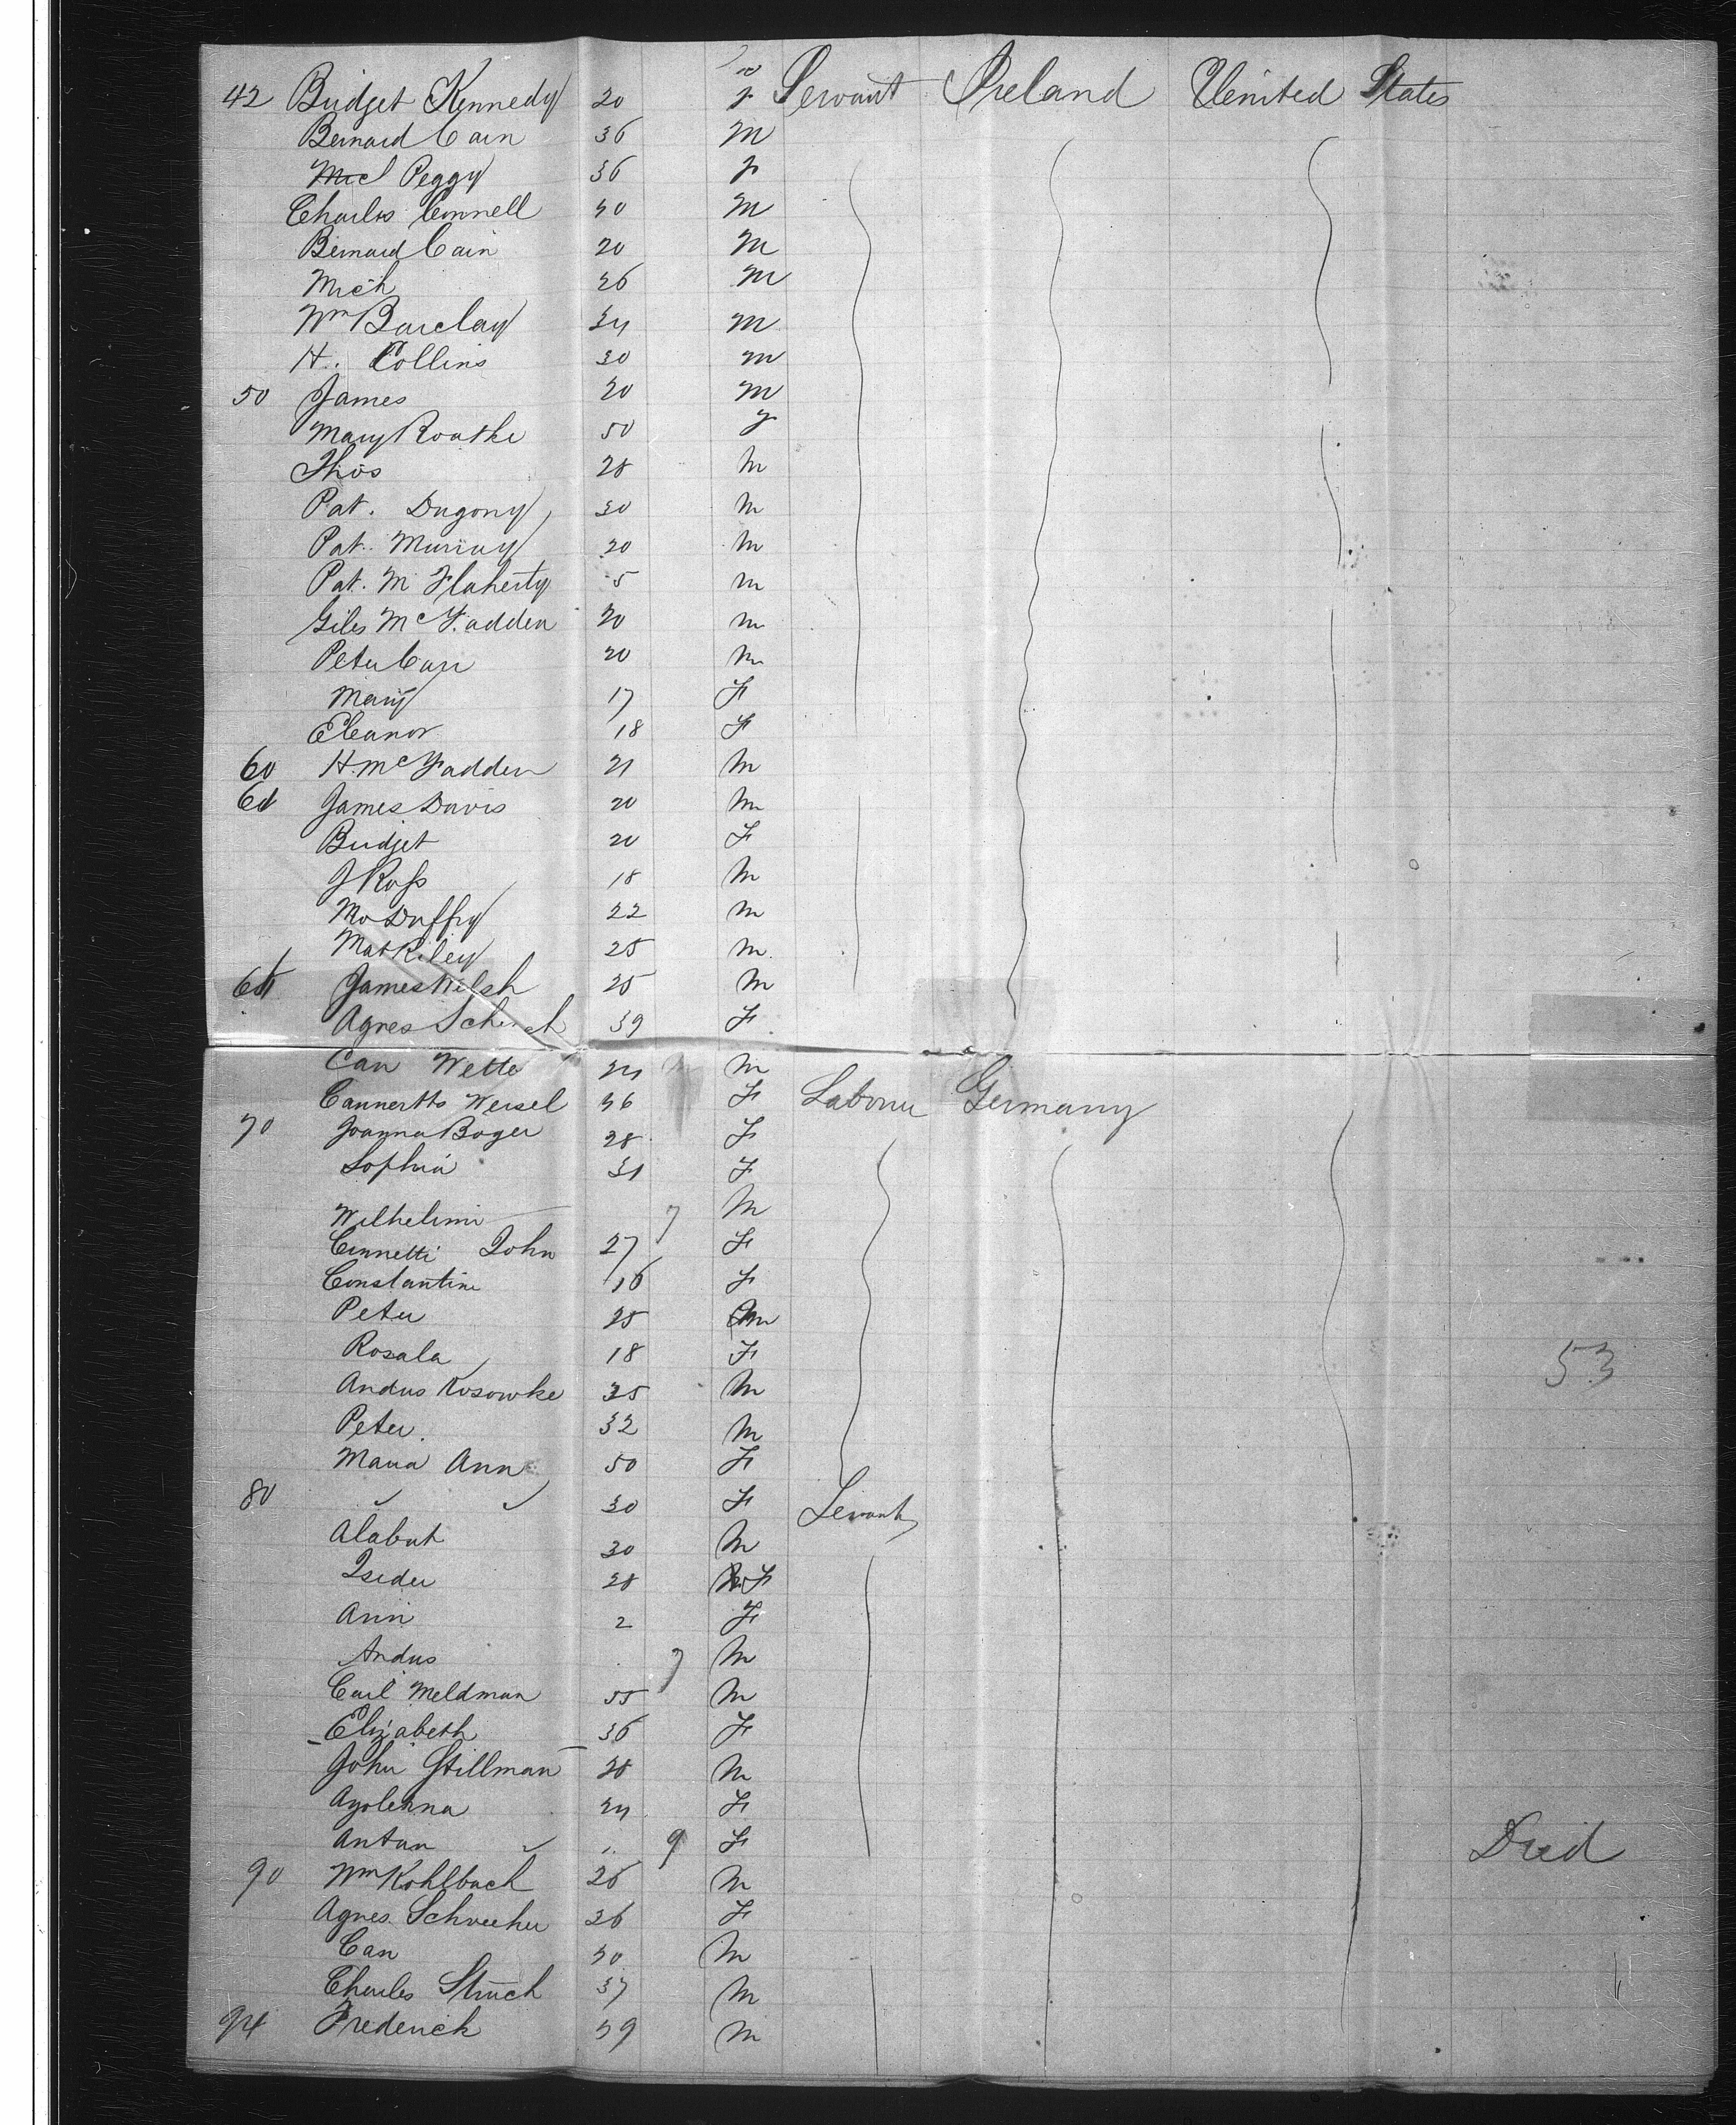 42 Bridget Kennedy 20 f Servant Ireland United States
Bernard Cain 36 M
Mich Peggy 36 f
Charles Connell 30 M
Bernard Cain 20 M
Mich 26 M
Wm Barclay 34 M
H. Collins 30 M
50 James 20 M
Mary Roatke 50 f
Thos 28 M
Pat. Dugony 30 M
Pat. Murray 20 M
Pat. M Flaherty 5 M
Giles McFadden 20 M
Peter Carr 20 M
Mary 17 F
Eleanor 18 F
60 H. McFadden 21 M
61 James Davis 20 M
Bridget 20 F
J Ross 18 M
Mo Duffy 22 M
Mat Riley 25 M
James Welsh 25 M
Agnes 39 F
Carr Wette 24 M
Cannertts Weisel 36 F Labourer Germany
70 Joanna Boger 28 F
Sophia 31 F
Wilhelmi 7 M
Cinnetti John 27 F
Constantine 16 F
Peter 25 M
Rosala 18 F
53
Andus Kosowke 35 M
Peter 32 M
Maria Ann 50 F
80 " " 30 F Servant
Alabut 30 M
Isider 28 F
Ann 2 F
Andus 7 M
Carl Meldman 55 M
Elizabeth 36 F
John Stillman 28 M
Ayolenna 24 F
Antun 9 F Died
90 Wm Kohlbach 26 M
Agnes Schrecher 26 F
Carr 30 M
Charles Struch 37 M
94 Frederick 39 M